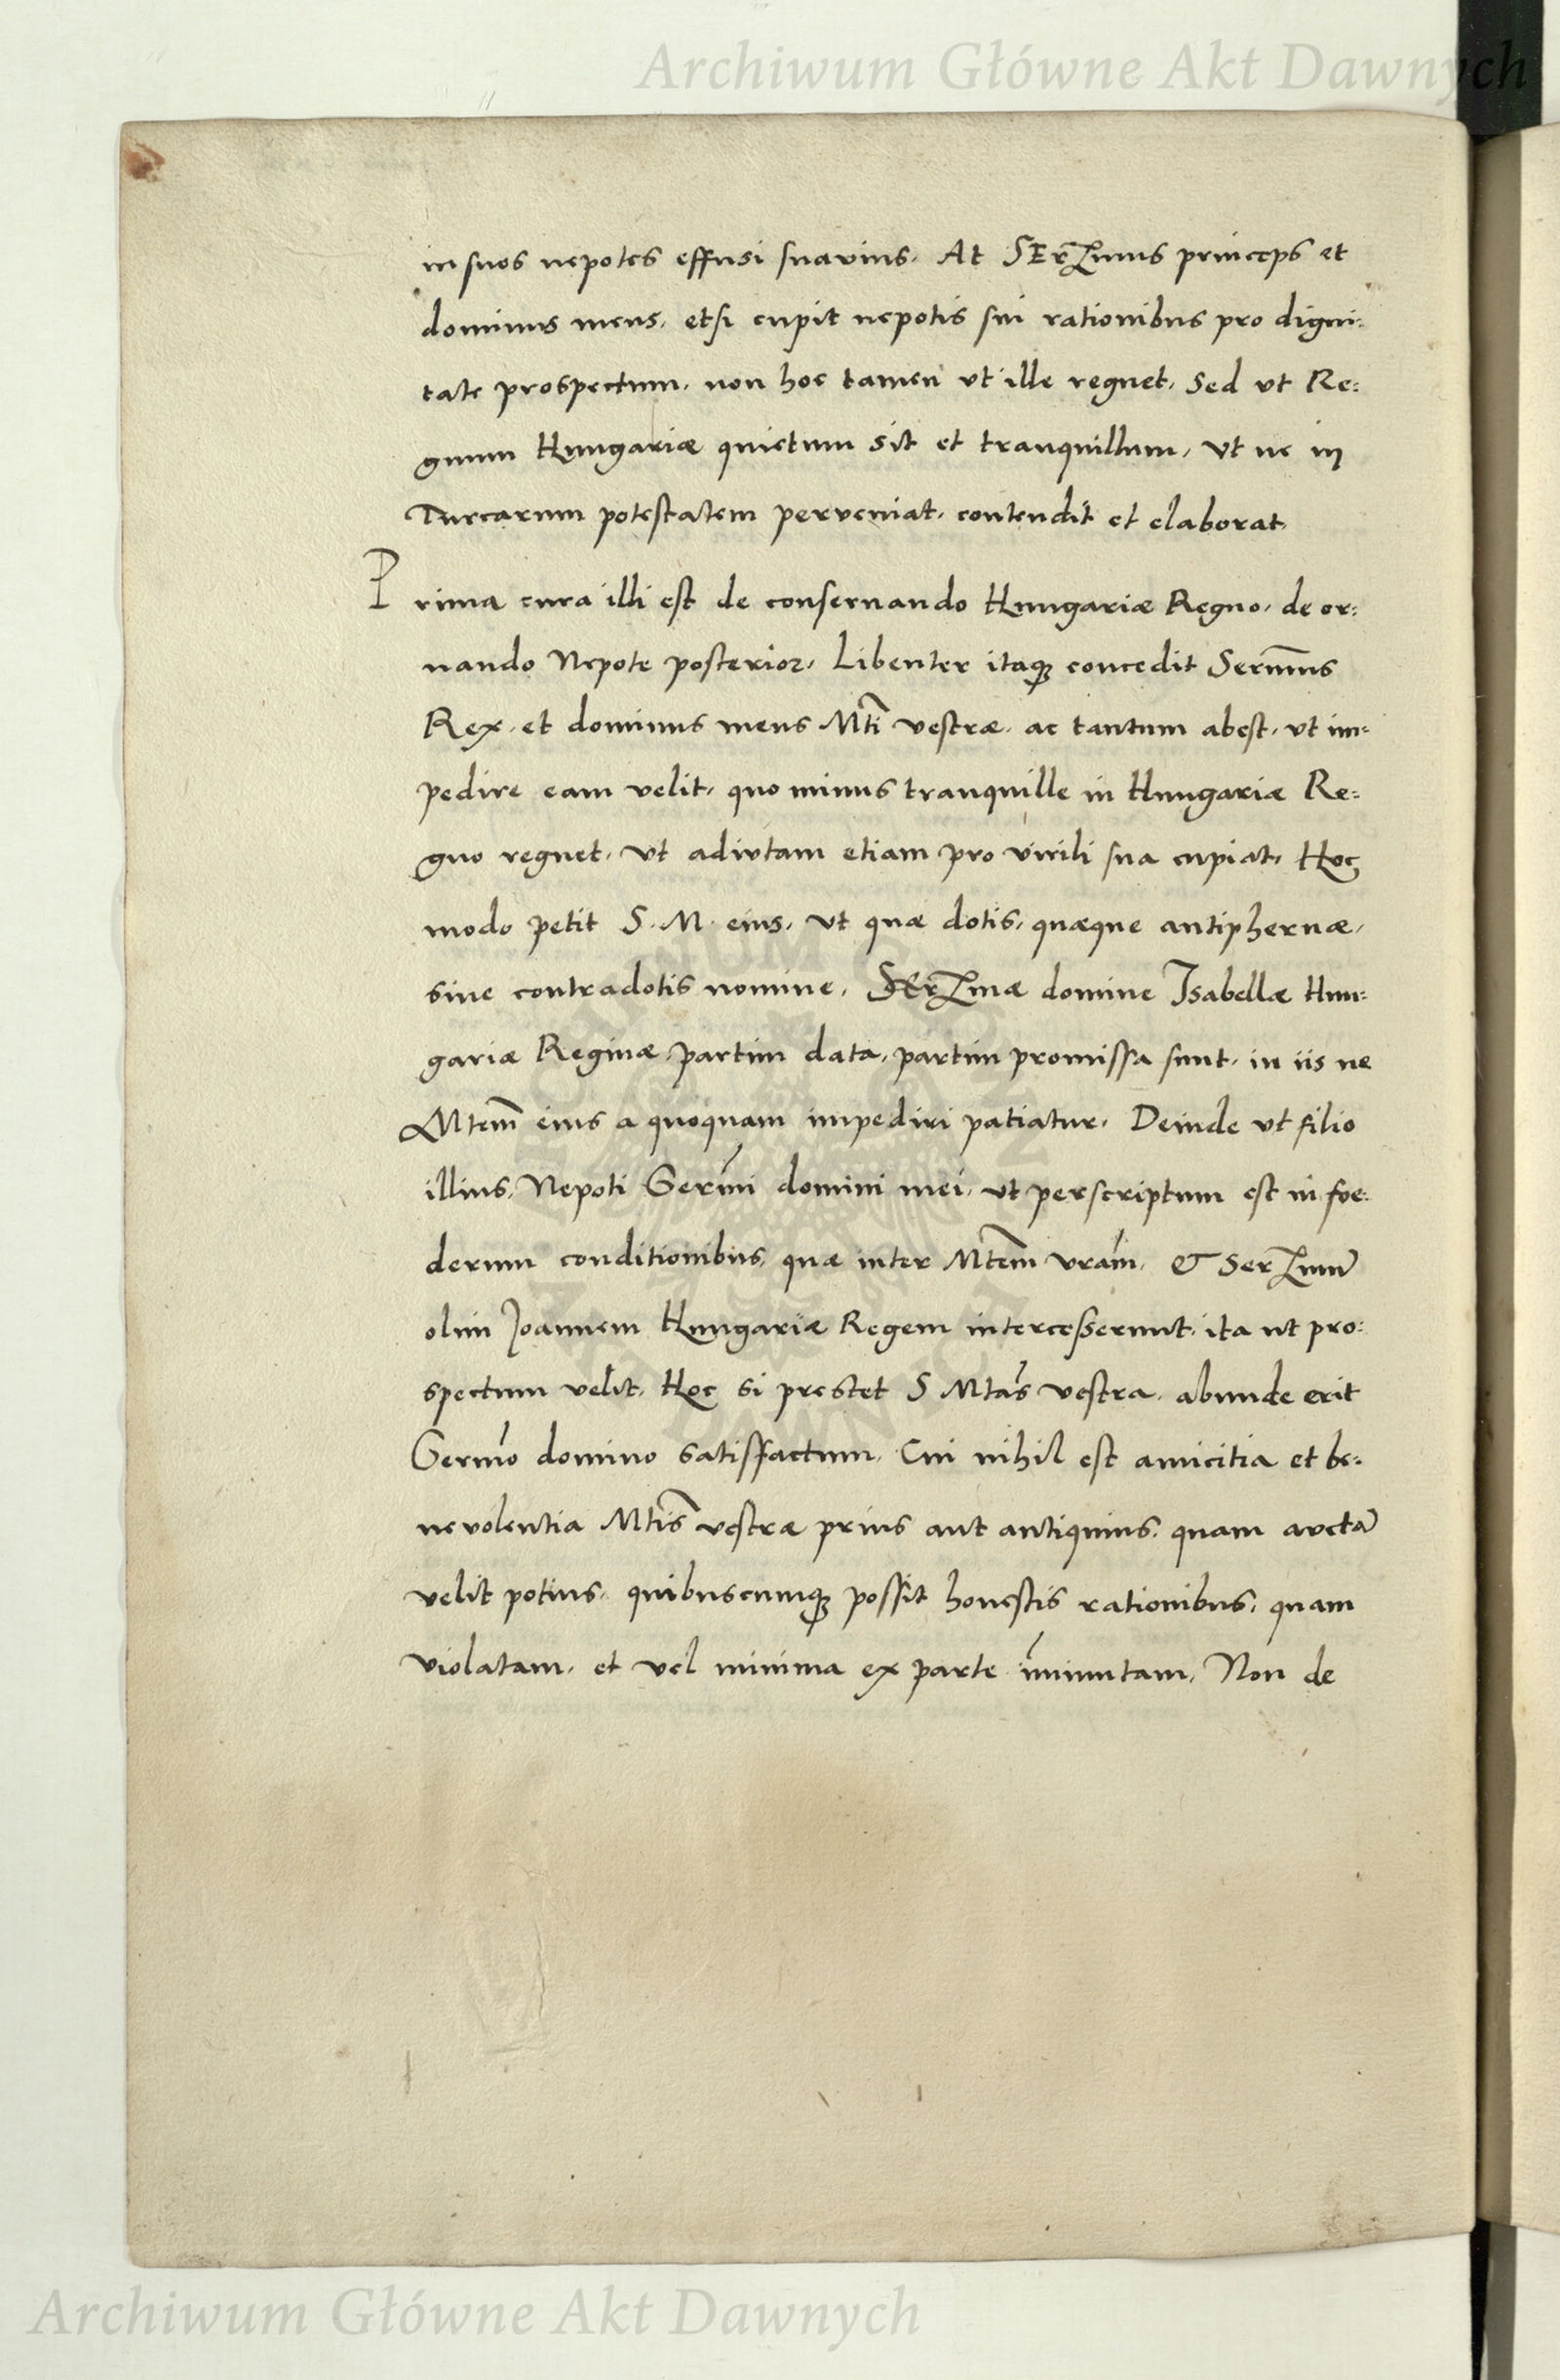 Archiwum Główne Akt Dawnych
in suos nepotes effusi suavius. At SErZmus princeps et
dominus meus, etsi cupit nepotis sui rationibus pro digni:
tate prospectum, non hoc tamen ut ille regnet, Sed ut Re:
gnum Hungariæ quietum sit et tranquillum, Ut ne in
Turcarum potestatem perveniat, contendit et elaborat.
Prima cura illi est de conservando Hungariæ Regno, de or:
nando Nepote posterior, Libenter itaqз concedit Sermus
Rex, et dominus meus Mti vestræ, ac tantum abest, ut im:
pedire eam velit, quo minus tranquille in Hungariæ Re:
gno regnet, ut adiutam etiam pro virili sua cupiat, Hoc
modo petit S. M. eius, ut quæ dotis, quæque antiphernæ,
sive contradotis nomine, SErZmæ domine Isabellæ Hun:
gariæ Reginæ, partim data, partim promissa sunt, in iis ne
Mtem eius a quoquam impediri patiatur, Deinde ut filio
illius, Nepoti Sermi domini mei, ut perscriptum est in foe:
derum conditionibus, quæ inter Mtem vram, & SerZmū
olim Joannem Hungariæ Regem intercesserunt, ita ut pro:
spectum velit, Hoc si prestet S Mtas vestra, abunde erit
Sermo domino satisfactum, Cui nihil est amicitia et be:
nevolentia Mtis vestræ prius aut antiquius, quam auctā
velit potius, quibuscumqз possit honestis rationibus, quam
violatam, et vel minima ex parte īminutam, Non de
Archiwum Główne Akt Dawnych